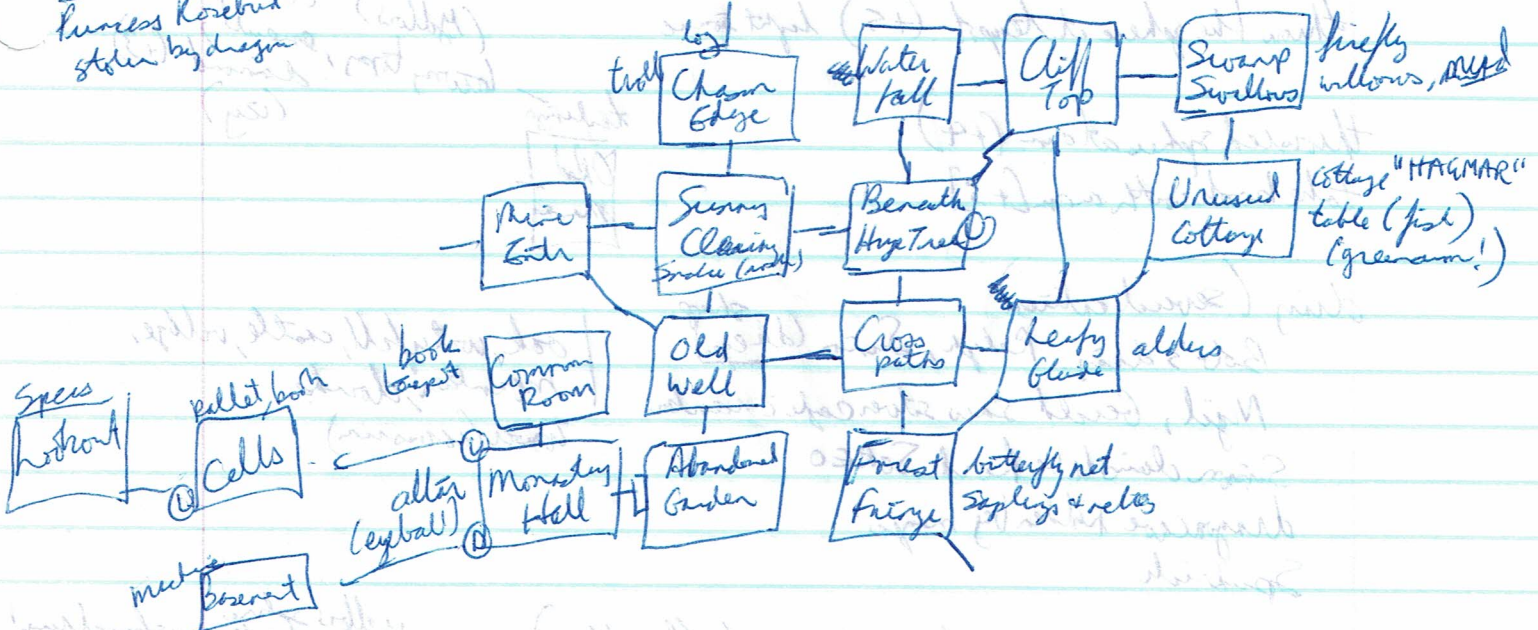 Princess Rosebud
stolen by dragon
log
troll
Chasm
Edge
Water
fall
Cliff
Top
Swamp
Swallows
firefly
willows, mud
Mine
Entr
Sunny
Clearing
Snake
Beneath
Huge Tree
U
Unused
Cottage
cottage "HAGMAR"
table (fish)
(greenarm!)
book
Common
Room
Old
Well
Cross
paths
Leafy
Glade
alders
Specs
Lookout
pallet, book
Cells
U
U
altar
(eyeball)
D
Monastery
Hall
Abandoned
Garden
Forest
Fringe
butterfly net
saplings +
Basement